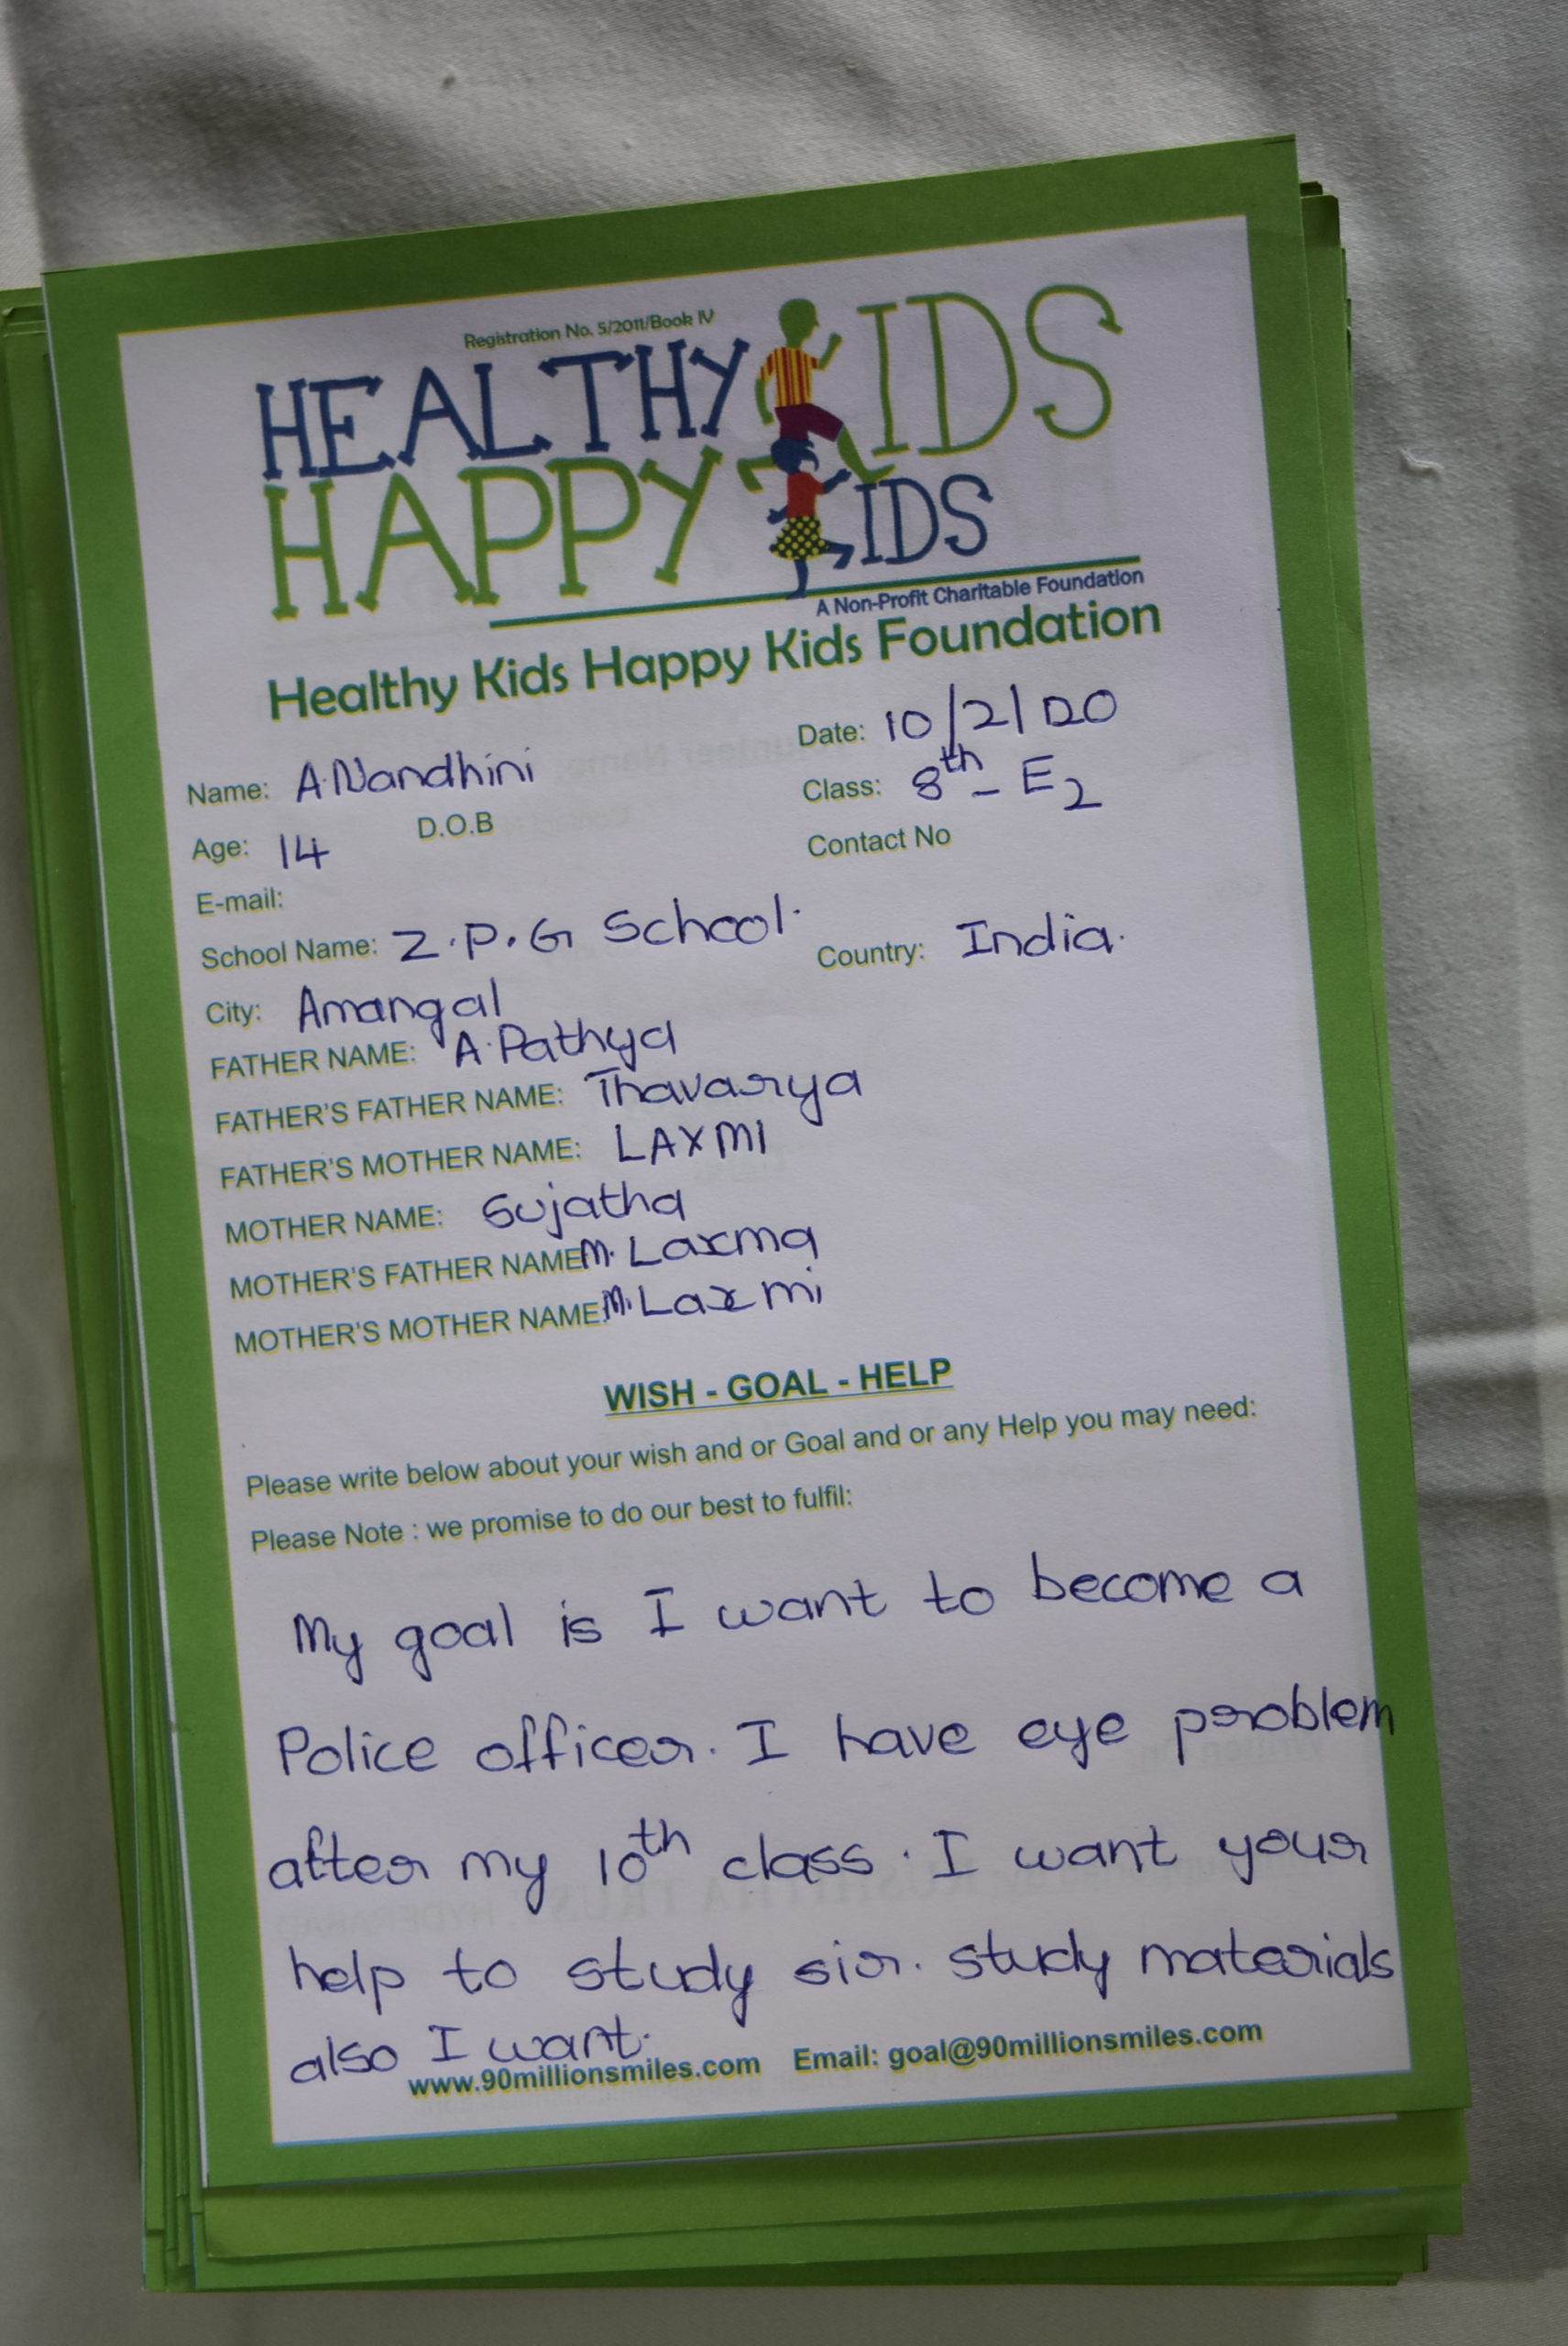 Registration No. 5/2011/Book IV
HEALTHY KIDS
HAPPY KIDS
A Non-Profit Charitable Foundation
Healthy Kids Happy Kids Foundation
Date: 10/2/20
Name: A.Nandhini
Class: 8th - E2
Age: 14 D.O.B
Contact No
E-mail:
School Name: Z.P.G School.
Country: India.
City: Amangal
FATHER NAME: A.Pathya
FATHER'S FATHER NAME: Thavarya
FATHER'S MOTHER NAME: LAXMI
MOTHER NAME: Sujatha
MOTHER'S FATHER NAME M. Laxma
MOTHER'S MOTHER NAME: M. Laxmi
WISH - GOAL - HELP
Please write below about your wish and or Goal and or any Help you may need:
Please Note : we promise to do our best to fulfil:
My goal is I want to become a
Police officer. I have eye problem
after my 10th class. I want your
help to study sir. study materials
also I want.
www.90millionsmiles.com Email: goal@90millionsmiles.com